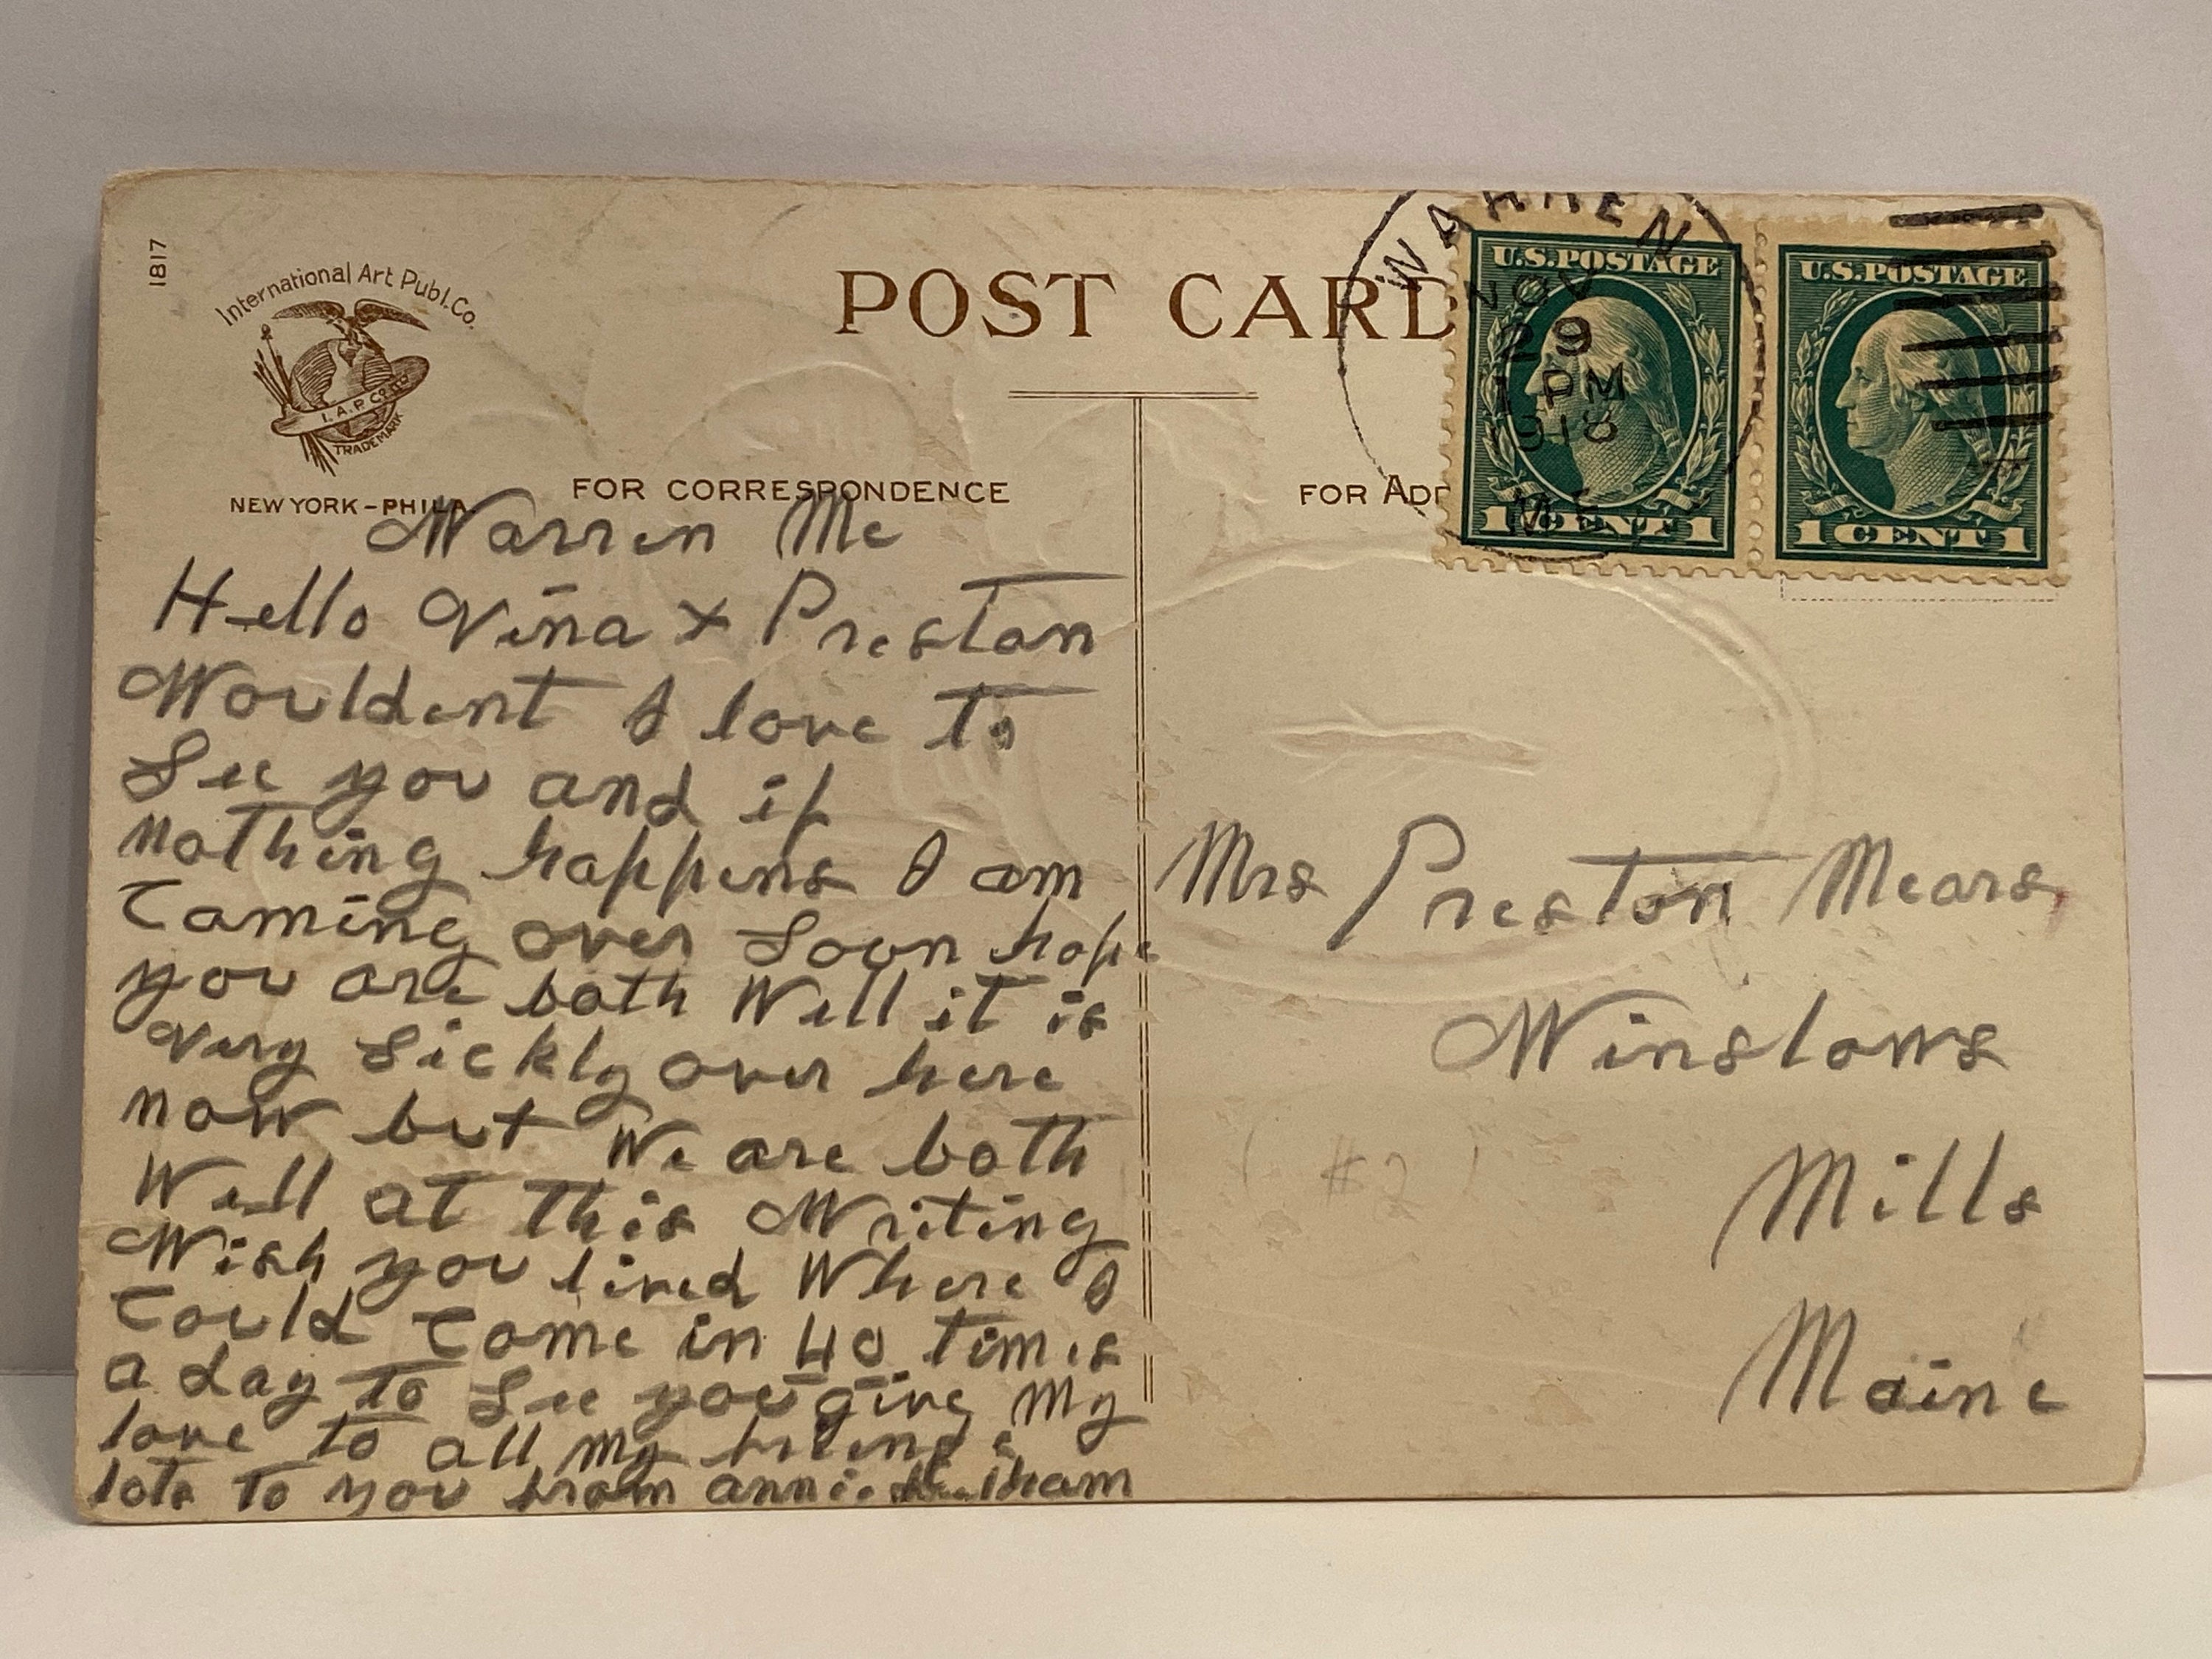 1817
International Art Publ. Co.
I. A. P. Co.
TRADE MARK
NEW YORK-PHILA.
POST CARD
FOR CORRESPONDENCE
FOR ADD
WARREN
NOV
29
1 PM
1918
ME.
U.S. POSTAGE
1 CENT 1
U.S. POSTAGE
1 CENT 1
Warren Me
Hello Vina & Preston
Wouldent I love to
See you and if
nothing happens I am
Coming over Soon hope
you are both Well it is
very Sickly over here
now but We are both
Well at this Writing
Wish you lived Where I
Could Come in 40 times
a day to See you give my
love to all my
lots to you from annie
Mrs Preston Mears
Winslows
Mills
Maine
(#2)